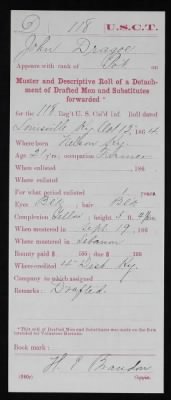 D 118 U.S.C.T.
John Dragoe
Appears with rank of Pvt on
Muster and Descriptive Roll of a Detachment
of Drafted Men and Substitutes
forwarded *
for the 118 Reg't U. S. Col'd Inf. Roll dated
Louisville Ky Oct 12, 1864
Where born Nelson Ky.
Age 21 y'rs; occupation Farmer
When enlisted , 186 .
Where enlisted
For what period enlisted 1 years.
Eyes Blk ; hair Blk
Complexion Yellow ; height 5 ft. in.
When mustered in Sept 19 , 186
Where mustered in Lebanon
Bounty paid $ 100 ; due $ 100
Where credited 4" Dist Ky.
Company to which assigned
Remarks: Drafted
* This roll of Drafted Men and Substitutes was made on the form intended for Volunteer Recruits.
Book mark:
H. E. Brandon
Copyist.